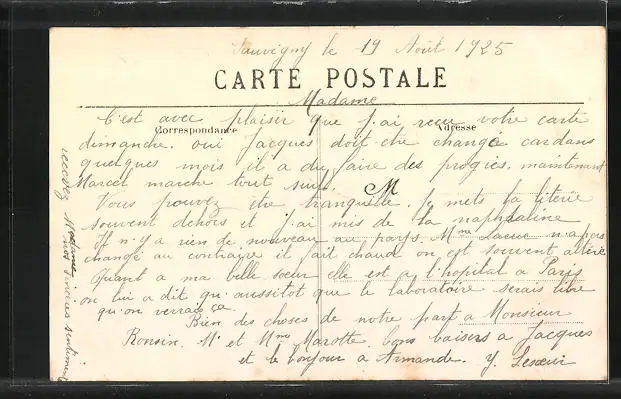 Sauvigny le 19 Août 1925
CARTE POSTALE
Madame
C'est avec plaisir que j'ai reçu votre carte
Correspondance
Adresse
dimanche. oui Jacques doit être changé car dans
quelques mois il a du faire des progrès. maintenant
Marcel marche tout seul.
M
Vous pouvez être tranquille. Je mets la literie
souvent dehors et j'ai mis de la naphtaline
Il n'y a rien de nouveau au pays. Mme n'a pas
changé au contraire il fait chaud on est souvent altéré
Quant a ma belle soeur elle est a l'hopital a Paris
on lui a dit qu'aussitot que le laboratoire serais libre
qu'on verrais ça.
Bien des choses de notre part a Monsieur
Ronsin. Mr et Mme Marotte. bons baisers a Jacques
et le bonjour a Armande. Y. Lesoeur
recevez Madame
nos sincères sentiments